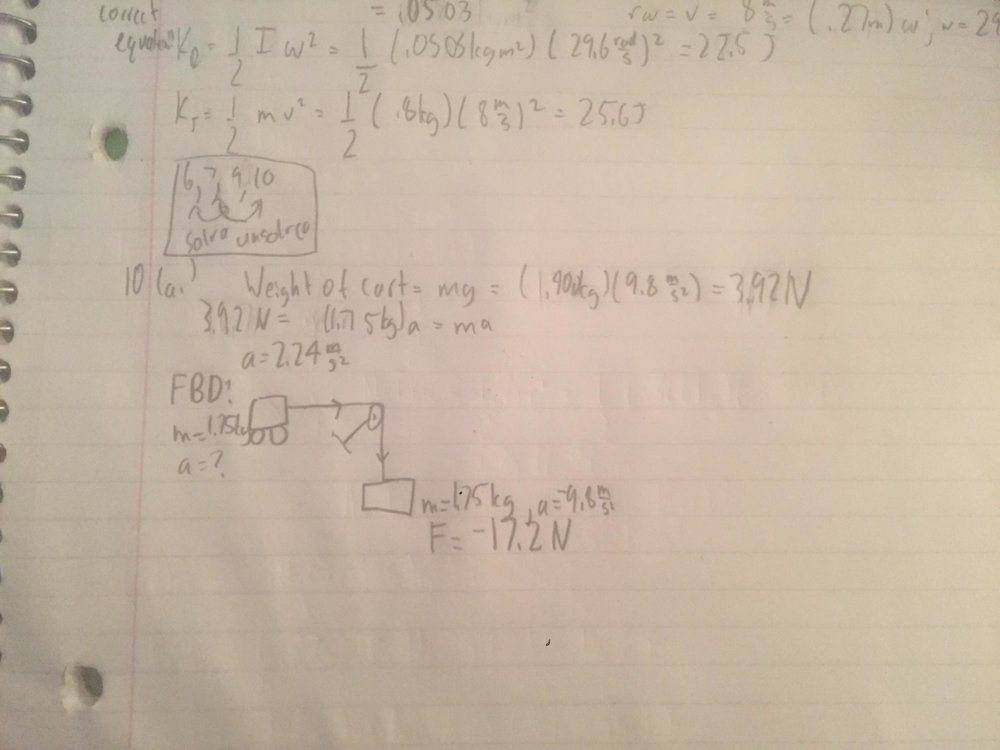 correct = .0503 rω = v = 8 m/s = (.27m) ω;
equation K₀ = 1/2 I ω² = 1/2 (.0505kgm²) (29.6 rad/s)² = 22.5 J
K_T = 1/2 m v² = 1/2 (.8kg) (8 m/s)² = 25.6J
6, 7, 9, 10
10 (a.) Weight of cart = mg = (9.8 m/s²) = 3.92 N
3.92 N = (1.75kg)a = ma
a = 2.24 m/s²
FBD:
m = 1.75kg
a = ?
m = 1.75 kg, a = -9.8 m/s²
F = -17.2 N